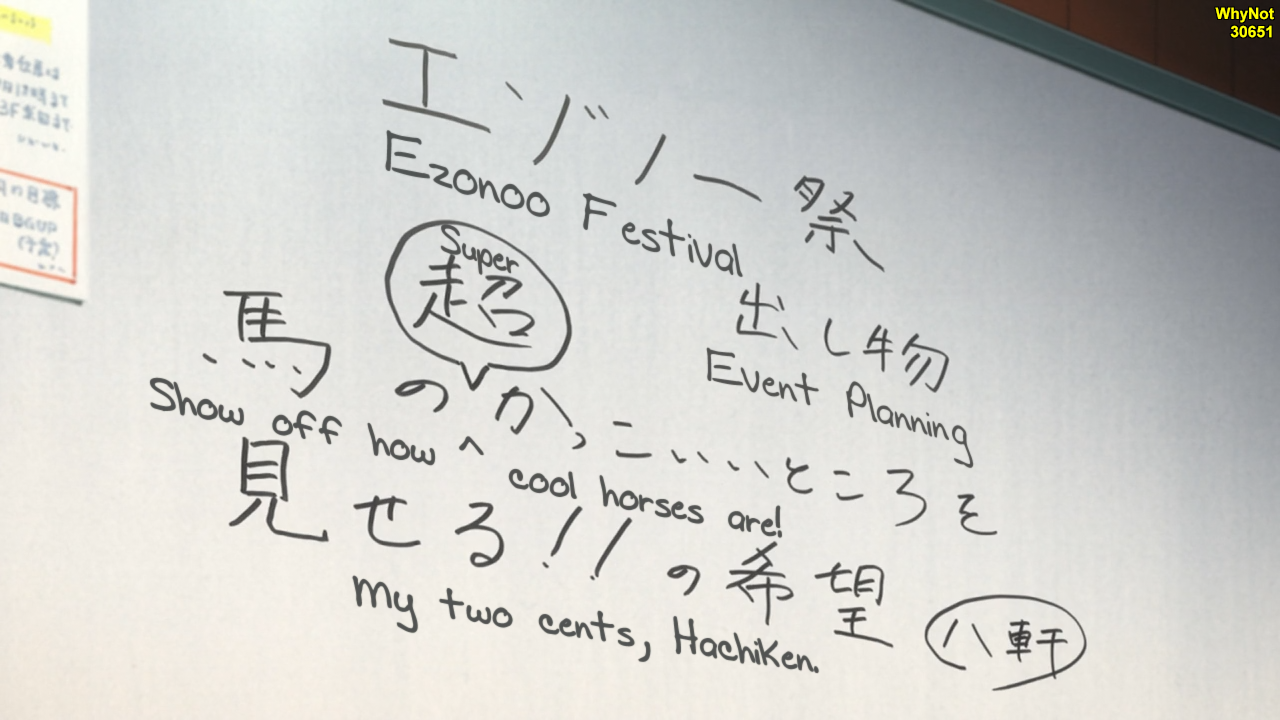 WhyNot
30651
エゾノー祭
Ezonoo Festival
出し物
Event Planning
Super
超
馬のかっこいい、、ところを
Show off how ^ cool horses are!
見せる!!の希望
八軒
My two cents, Hachiken.